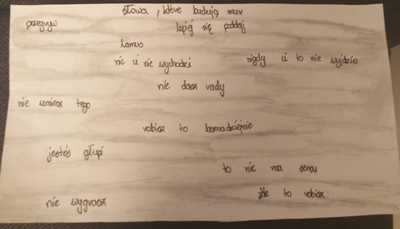 słowa, które budują mur
przegryw
lepiej się poddaj
nic ci nie wychodzi
nigdy ci to nie wyjdzie
nie dasz rady
nie umiesz tego
robisz to beznadziejnie
jesteś głupi
to nie ma sensu
źle to robisz
nie wygrasz